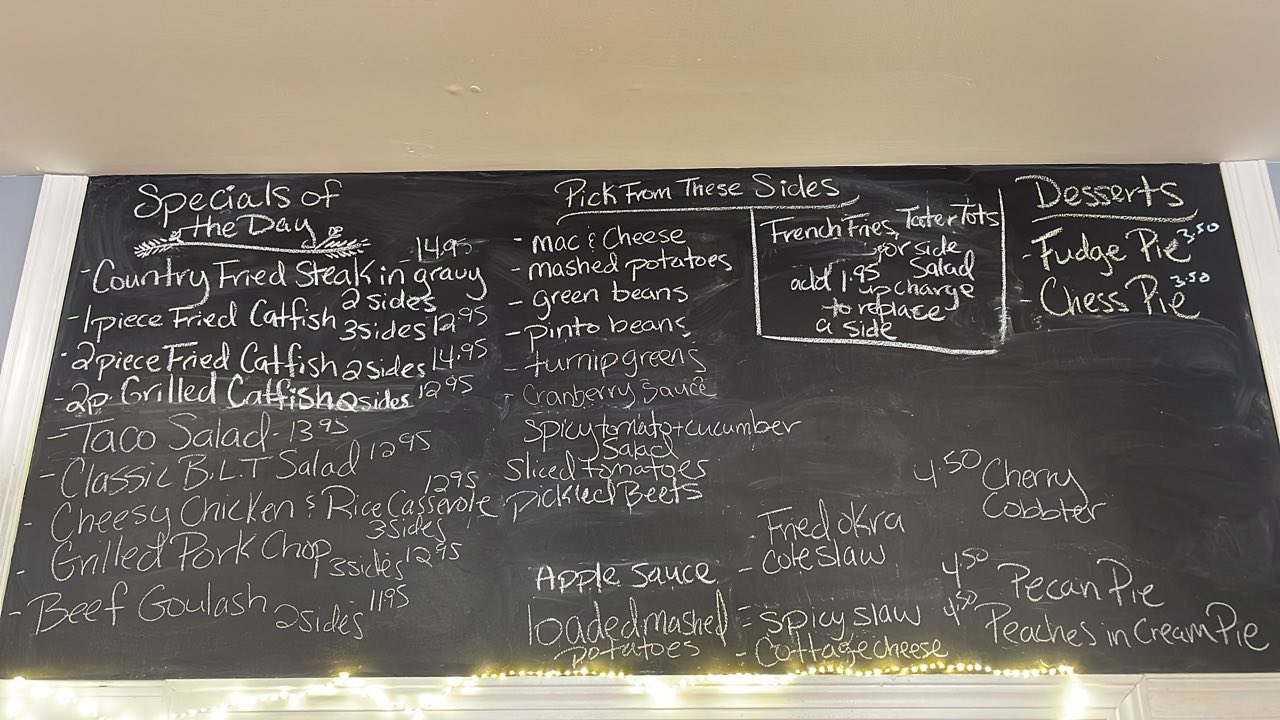 Specials of
the Day
14.95
- Country Fried Steak in gravy
2 sides
- 1 piece Fried Catfish 3 sides 12.95
- 2 piece Fried Catfish 2 sides 14.95
- 2p. Grilled Catfish 2 sides 12 95
- Taco Salad - 13 95
- Classic B.L.T Salad 12 95
12 95
- Cheesy Chicken & Rice Casserole
3 sides
- Grilled Pork Chop 3 sides 12 95
- Beef Goulash 2 sides 11 95
Pick From These Sides
- mac & Cheese
- mashed potatoes
- green beans
- pinto beans
- turnip greens
- Cranberry Sauce
Spicy tomato + cucumber
Salad
Sliced tomatoes
pickled Beets
Apple Sauce
loaded mashed
potatoes
French Fries, Tater Tots
or side
Salad
add 1.95 upcharge
to replace
a side
- Fried okra
- cole slaw
- Spicy slaw
- Cottage cheese
Desserts
- Fudge Pie 3.50
- Chess Pie 3.50
4.50 Cherry
Cobbler
4.50 Pecan Pie
4.50 Peaches in Cream Pie